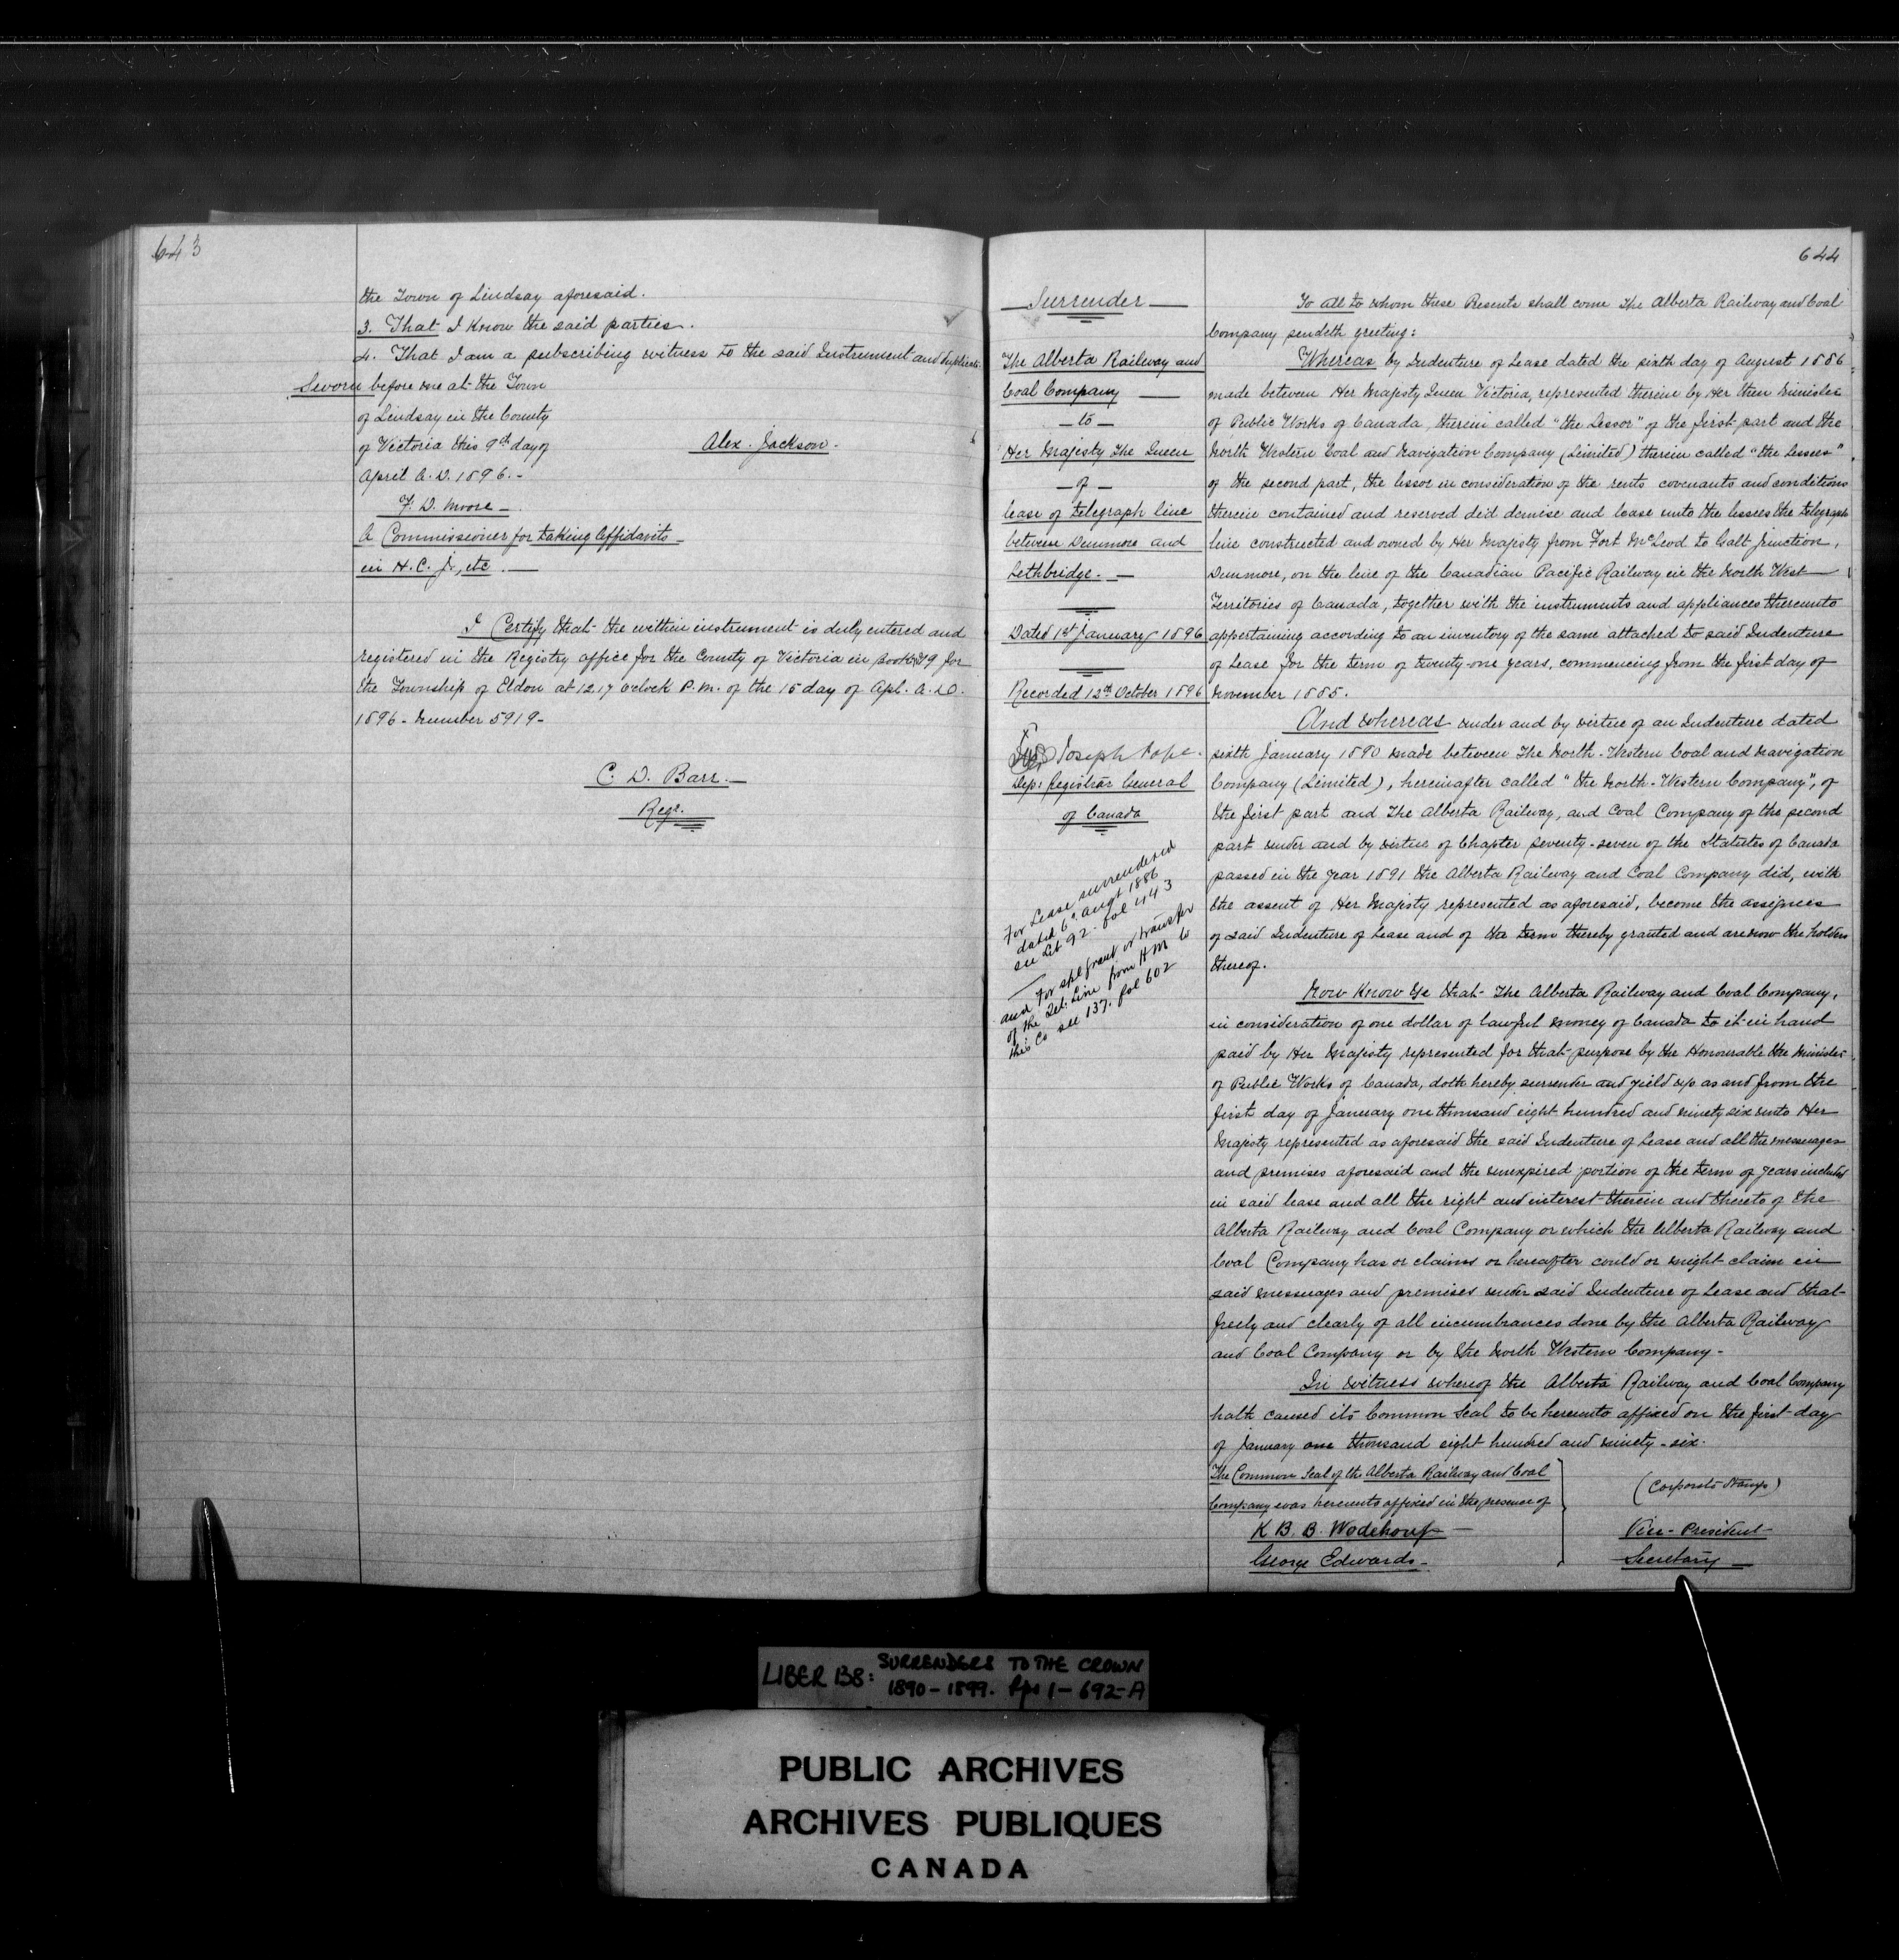 643
the Town of Lindsay aforesaid.
3. That I know the said parties.
4. That I am a subscribing witness to the said Instrument and duplicate.
Sworn before me at the Town
of Lindsay in the County
of Victoria this 9th day of
April A.D. 1896. -
Alex. Jackson.
F. D. Moore -
A Commissioner for taking Affidavits
in H.C.J., etc. —
I Certify that the within instrument is duly entered and
registered in the Registry office for the County of Victoria in Book 19 for
the Township of Eldon at 12.17 O'clock P.M. of the 15 day of Apl. A.D.
1896 - number 5919 -
C. D. Barr. —
Regr.
644
Surrender —
The Alberta Railway and
Coal Company —
— to —
Her Majesty The Queen
— of —
lease of telegraph line
between Dunmore and
Lethbridge. —
Dated 1st January 1896
Recorded 12th October 1896
Joseph Pope.
Dep: Registrar General
of Canada
For Lease surrendered
dated 6th Augt 1886
see Lib 92 - fol 443
and for spl grant or transfer
of the Tel: Line from H M to
this Co see 137. fol 602
To all to whom these Presents shall come The Alberta Railway and Coal
Company sendeth greeting:
Whereas by Indenture of Lease dated the sixth day of August 1886
made between Her Majesty Queen Victoria, represented therein by Her then Minister
of Public Works of Canada, therein called "the Lessor" of the first part and the
North Western Coal and Navigation Company (Limited) therein called "the Lessees"
of the second part, the lessor in consideration of the rents covenants and conditions
therein contained and reserved did demise and lease unto the lessees the telegraph
line constructed and owned by Her Majesty from Fort McLeod to Galt Junction,
Dunmore, on the line of the Canadian Pacific Railway in the North West
Territories of Canada, together with the instruments and appliances thereunto
appertaining according to an inventory of the same attached to said Indenture
of Lease for the term of twenty-one years, commencing from the first day of
November 1885.
And whereas under and by virtue of an Indenture dated
sixth January 1890 made between The North-Western Coal and Navigation
Company (Limited), hereinafter called "the North-Western Company", of
the first part and The Alberta Railway, and Coal Company of the second
part under and by virtue of Chapter seventy-seven of the Statutes of Canada
passed in the year 1891 the Alberta Railway and Coal Company did, with
the assent of Her Majesty represented as aforesaid, become the assignees
of said Indenture of Lease and of the term thereby granted and are now the holders
thereof.
Now Know Ye that The Alberta Railway and Coal Company,
in consideration of one dollar of lawful money of Canada to it in hand
paid by Her Majesty represented for that purpose by the Honourable the Minister
of Public Works of Canada, doth hereby surrender and yield up as and from the
first day of January one thousand eight hundred and ninety six unto Her
Majesty represented as aforesaid the said Indenture of Lease and all the messuages
and premises aforesaid and the unexpired portion of the term of years included
in said lease and all the right and interest therein and thereto of the
Alberta Railway and Coal Company or which the Alberta Railway and
Coal Company has or claims or hereafter could or might claim in
said messuages and premises under said Indenture of Lease and that
freely and clearly of all incumbrances done by the Alberta Railway
and Coal Company or by the North Western Company -
In witness whereof the Alberta Railway and Coal Company
hath caused its Common Seal to be hereunto affixed on the first day
of January one thousand eight hundred and ninety-six.
The Common Seal of the Alberta Railway and Coal
Company was hereunto affixed in the presence of
(Corporate Stamp)
K B. B. Wodehouse —
Vice-President
George Edwards -
Secretary —
LIBER 138: SURRENDERS TO THE CROWN
1890-1899. Pps 1-692-A
PUBLIC ARCHIVES
ARCHIVES PUBLIQUES
CANADA